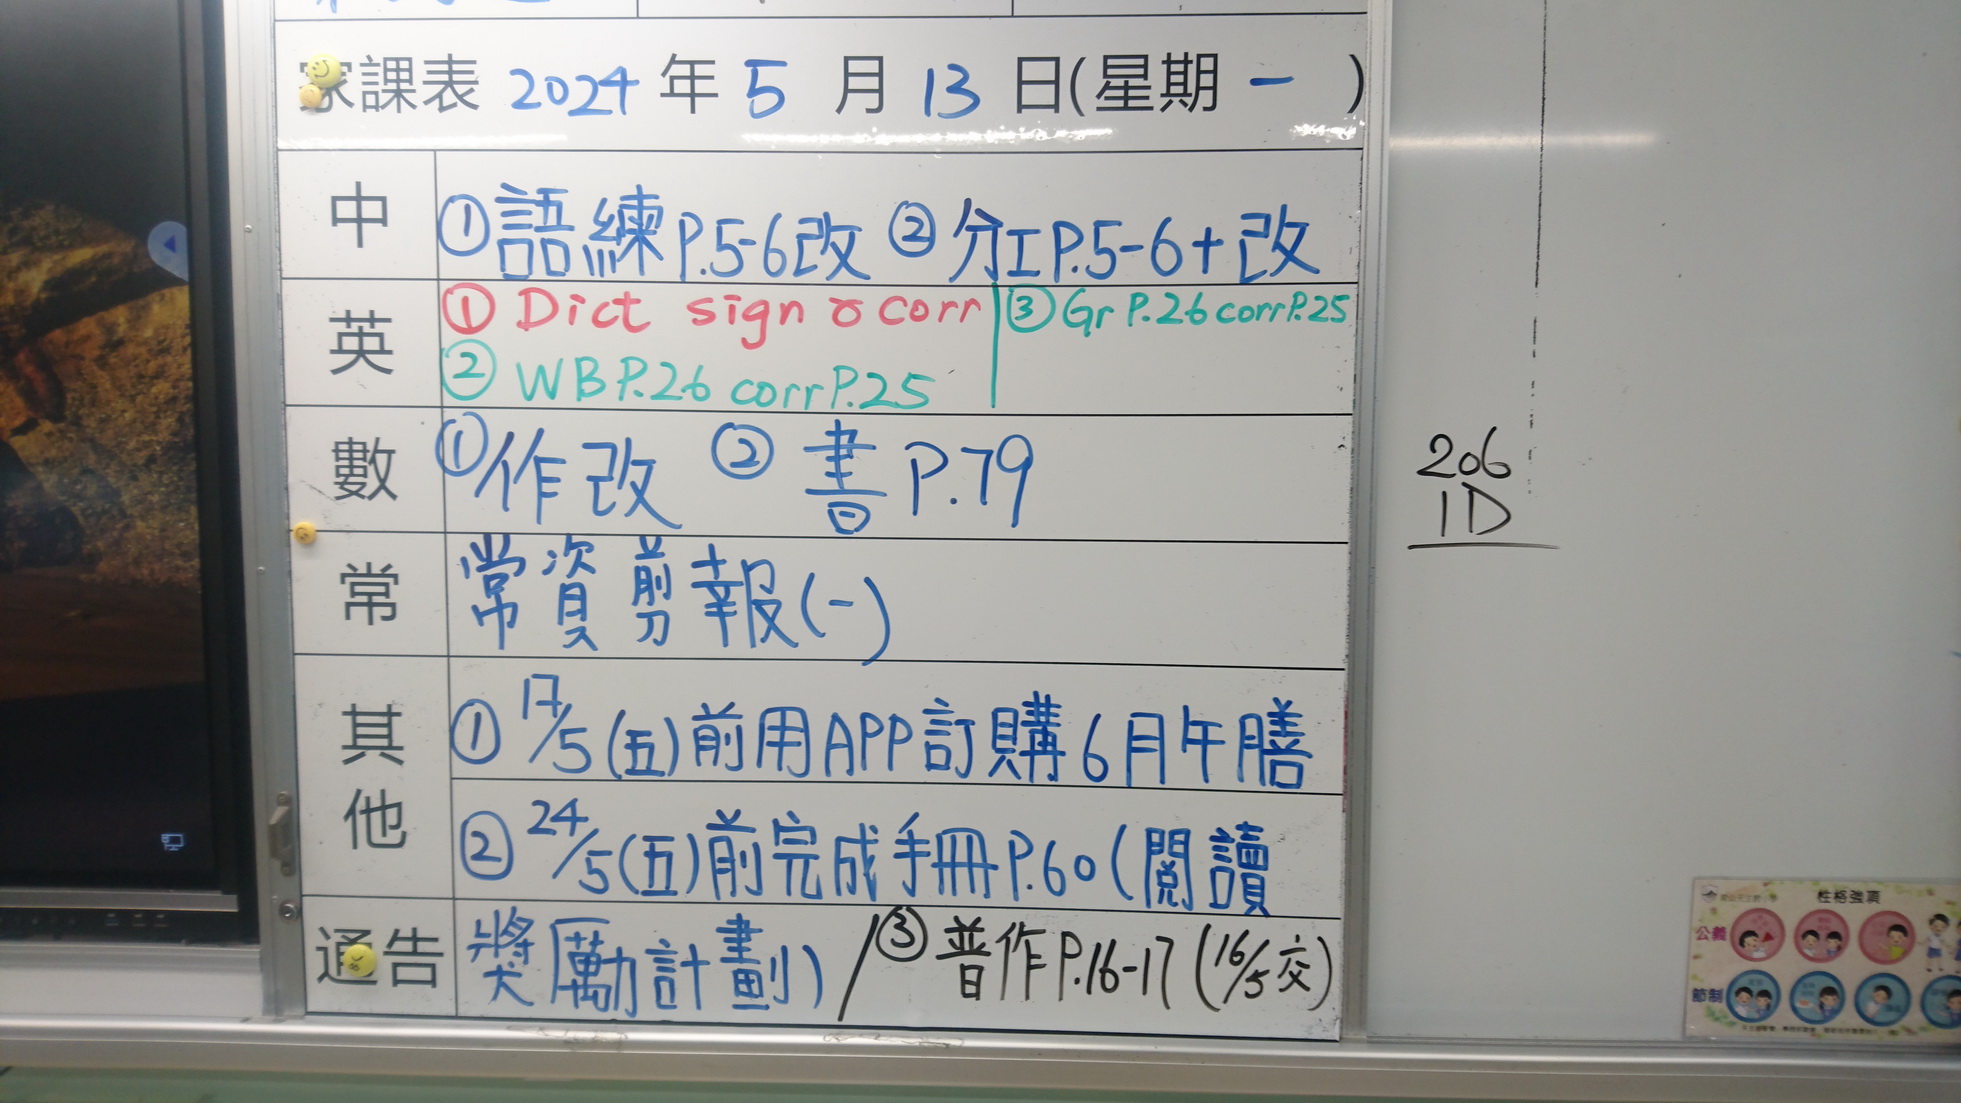 家課表 2024 年 5 月 13 日(星期 一 )
中 ①語練P.5-6改 ②分工P.5-6+改
英 ① Dict sign & corr ③ Gr P.26 corr P.25
② WB P.26 corr P.25
數 ①作改 ② 書 P.79
常 常資剪報(一)
其他 ① 17/5(五)前用APP訂購6月午膳
② 24/5(五)前完成手冊P.60(閱讀
通告 獎勵計劃) / ③普作P.16-17 (16/5交)
206
1D
性格強項
公義
節制